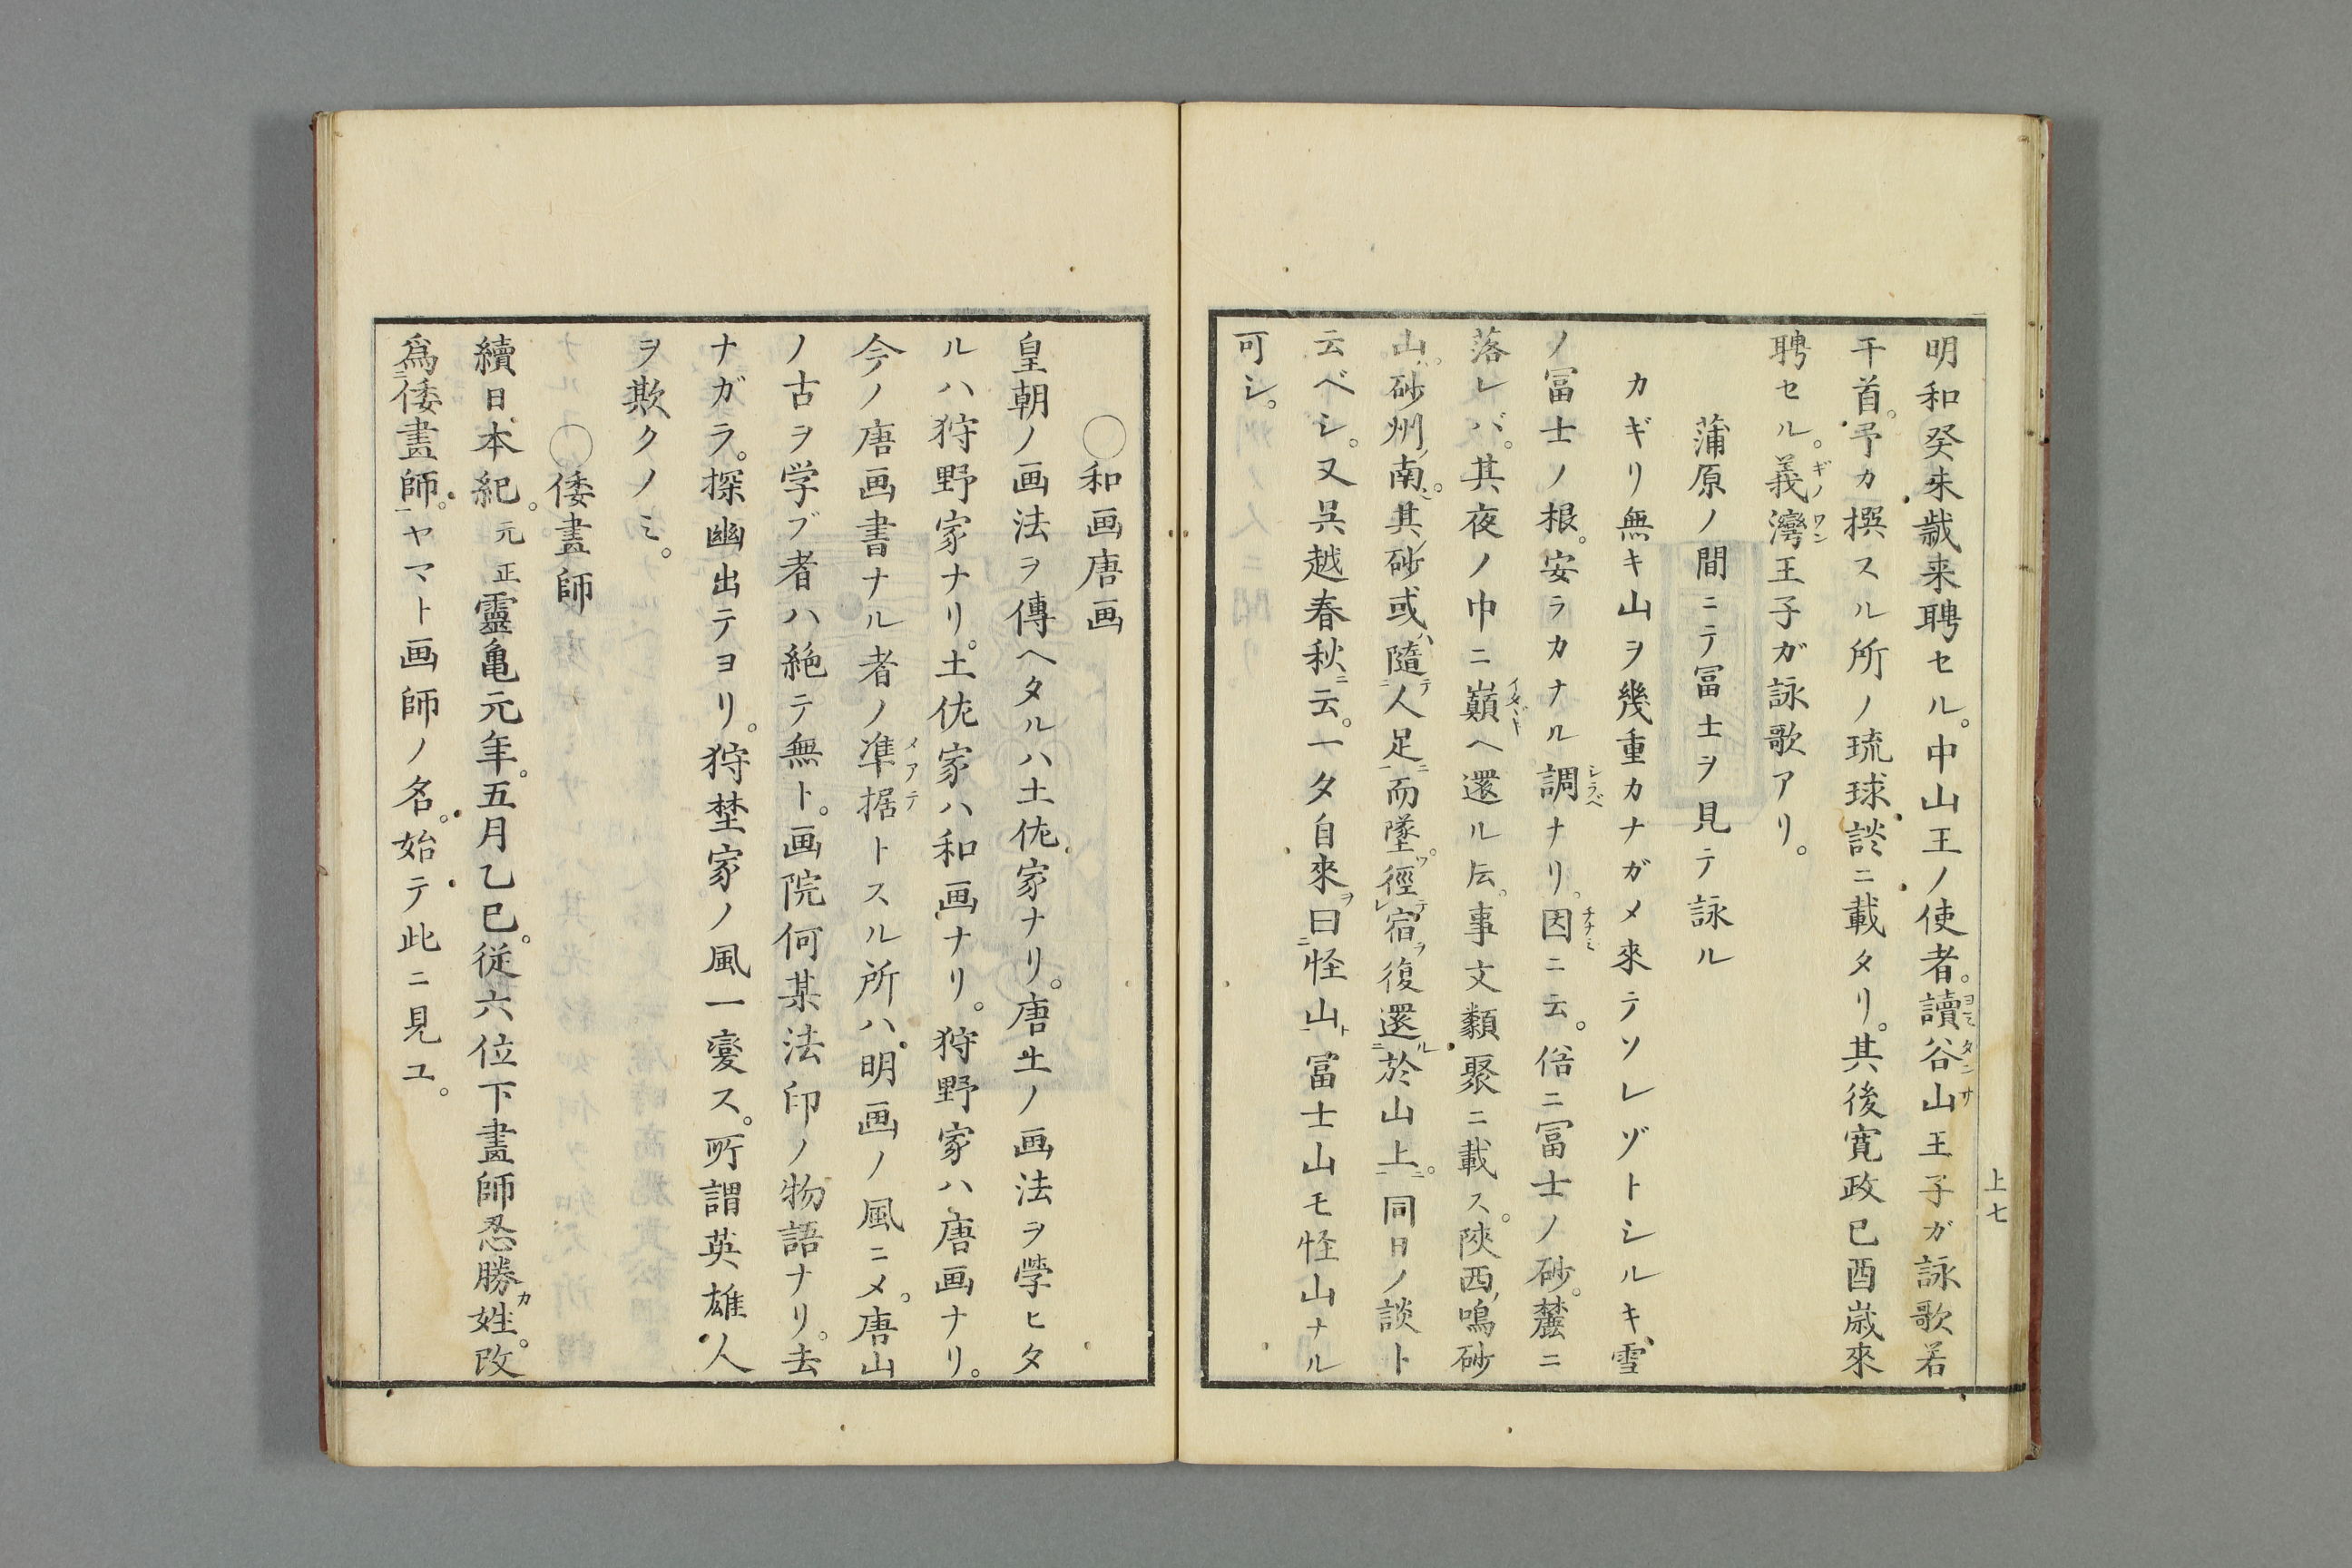 明和癸未歳来聘セル。中山王ノ使者。讀谷山王子ガ詠歌若
干首。予カ撰スル所ノ琉球談ニ載タリ。其後寛政已酉歳來
聘セル。義灣王子ガ詠歌アリ。
蒲原ノ間ニテ冨士ヲ見テ詠ル
カギリ無キ山ヲ幾重カナガメ來テソレゾトシルキ雪
ノ冨士ノ根。安ラカナル調ナリ。因ニ云。俗ニ冨士ノ砂。麓ニ
落レバ。其夜ノ中ニ巓ヘ還ル㕝。事文類聚ニ載ス。陜西ノ鳴砂
山。砂州ノ南。其ノ砂或ハ隨テ人足ニ而墜。徑テ宿ヲ復還ル於山上。同日ノ談ト
云ベシ。又呉越春秋ニ云。一夕自來ヲ曰怪山ト冨士山モ怪山ナル
可シ。
上七
○和画唐画
皇朝ノ画法ヲ傳ヘタルハ土佐家ナリ。唐土ノ画法ヲ學ヒタ
ルハ狩野家ナリ。土佐家ハ和画ナリ。狩野家ハ唐画ナリ。
今ノ唐画書ナル者ノ準据トスル所ハ明画ノ風ニメ。唐山
ノ古ヲ学ブ者ハ絶テ無ト。画院何某法印ノ物語ナリ。去
ナガラ。探幽出テヨリ。狩埜家ノ風一變ス。所謂英雄人
ヲ欺クノミ。
○倭畫師
續日本紀。元正靈亀元年。五月乙巳。従六位下畫師忍勝カ姓。改
爲倭畫師。ヤマト画師ノ名。始テ此ニ見ユ。